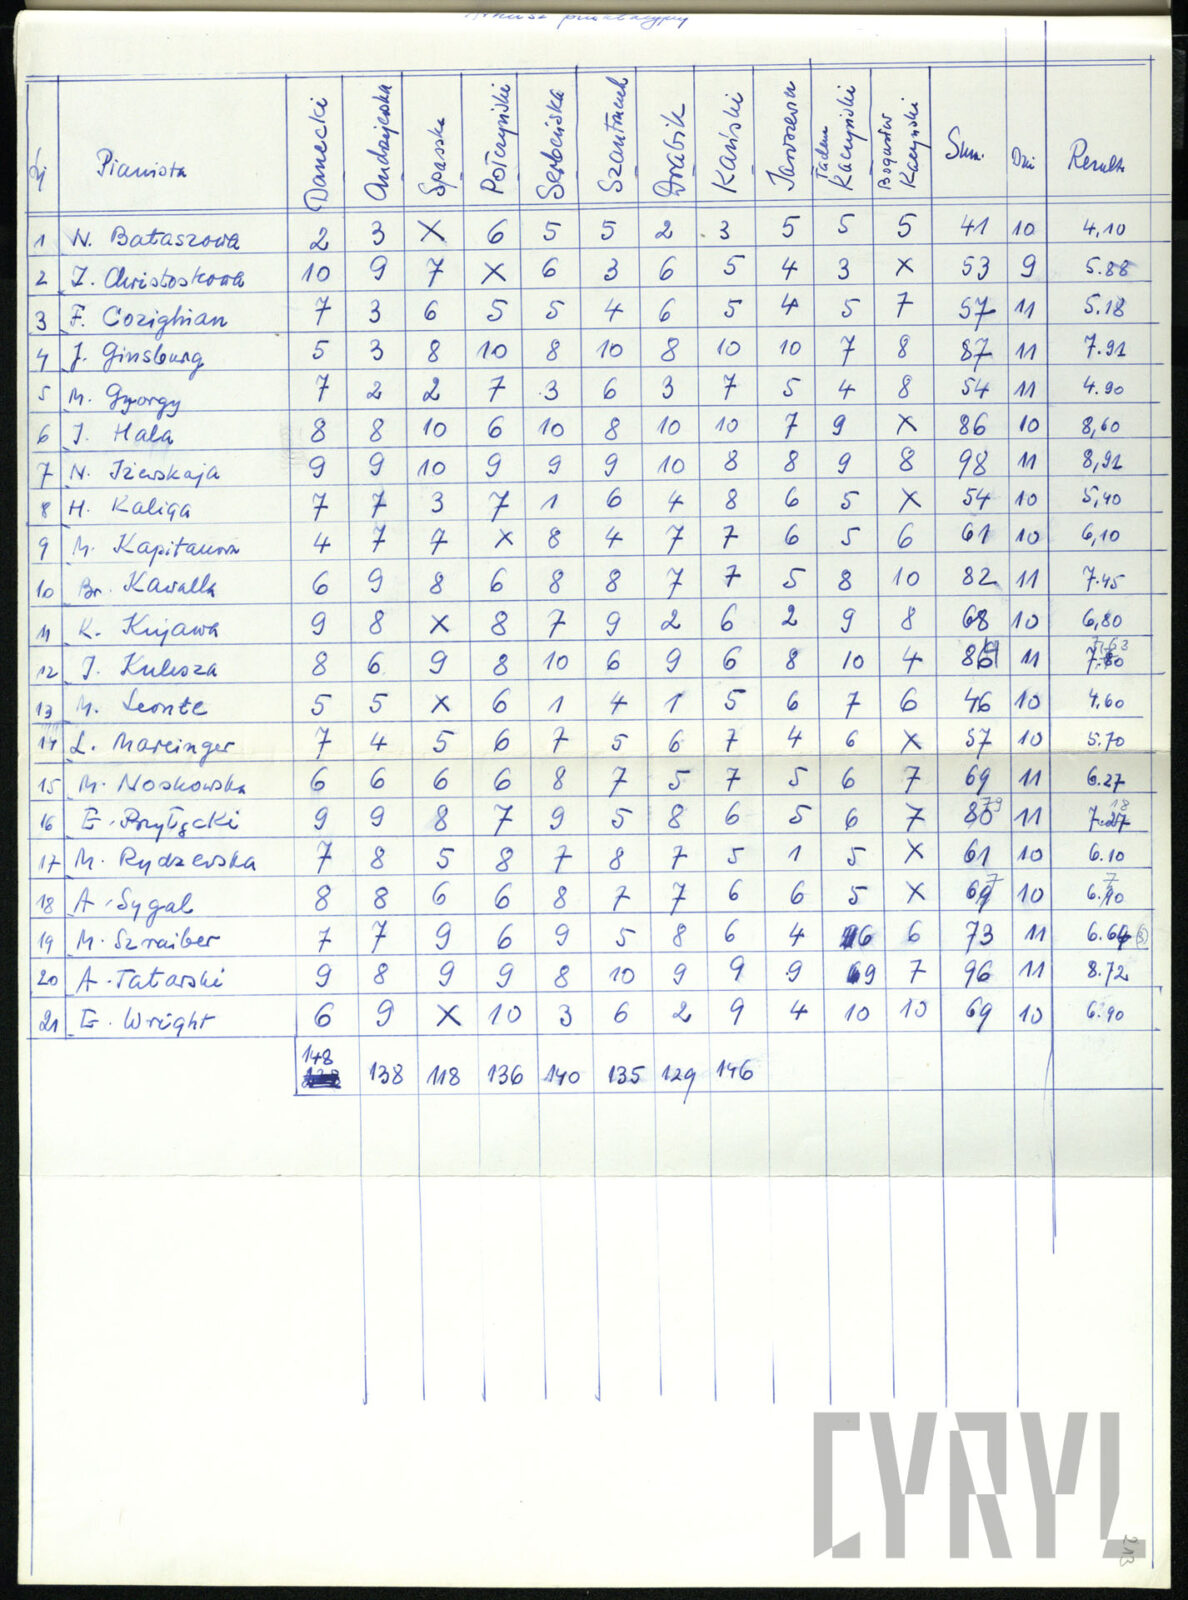 Arkusz punktacyjny
Lp Pianista Danecki Andrzejewska Spasska Połczyński Serbeńska Szantruček Drabik Kański Jaroszewicz Tadeu Kaczyński Bogusław Kaczyński Sum. Dzi Rezult
1 N. Bataszowa 2 3 X 6 5 5 2 3 5 5 5 41 10 4,10
2 J. Christoskowa 10 9 7 X 6 3 6 5 4 3 X 53 9 5.88
3 F. Cozighian 7 3 6 5 5 4 6 5 4 5 7 57 11 5.18
4 J. Ginsburg 5 3 8 10 8 10 8 10 10 7 8 87 11 7.91
5 M. Gyorgy 7 2 2 7 3 6 3 7 5 4 8 54 11 4.90
6 J. Hala 8 8 10 6 10 8 10 10 7 9 X 86 10 8,60
7 N. Iżewskaja 9 9 10 9 9 9 10 8 8 9 8 98 11 8,91
8 H. Kaliga 7 7 3 7 1 6 4 8 6 5 X 54 10 5,40
9 M. Kapitanowa 4 7 7 X 8 4 7 7 6 5 6 61 10 6,10
10 Br. Kawalla 6 9 8 6 8 8 7 7 5 8 10 82 11 7.45
11 K. Kujawa 9 8 X 8 7 9 2 6 2 9 8 68 10 6,80
12 J. Kulesza 8 6 9 8 10 6 9 6 8 10 4 86 11 7,63
13 M. Leonte 5 5 X 6 1 4 1 5 6 7 6 46 10 4.60
14 L. Mareinger 7 4 5 6 7 5 6 7 4 6 X 57 10 5.70
15 M. Noskowska 6 6 6 6 8 7 5 7 5 6 7 69 11 6.27
16 E. Przyłęcki 9 9 8 7 9 5 8 6 5 6 7 80 79 11 7.27 18
17 M. Rydzewska 7 8 5 8 7 8 7 5 1 5 X 61 10 6.10
18 A. Sygal 8 8 6 6 8 7 7 6 6 5 X 69 7 10 6.90 7
19 M. Szraiber 7 7 9 6 9 5 8 6 4 6 6 73 11 6.64
20 A. Tatarski 9 8 9 9 8 10 9 9 9 9 7 96 11 8.72
21 E. Wright 6 9 X 10 3 6 2 9 4 10 10 69 10 6.90
148
138 118 136 140 135 129 146
CYRYL
213